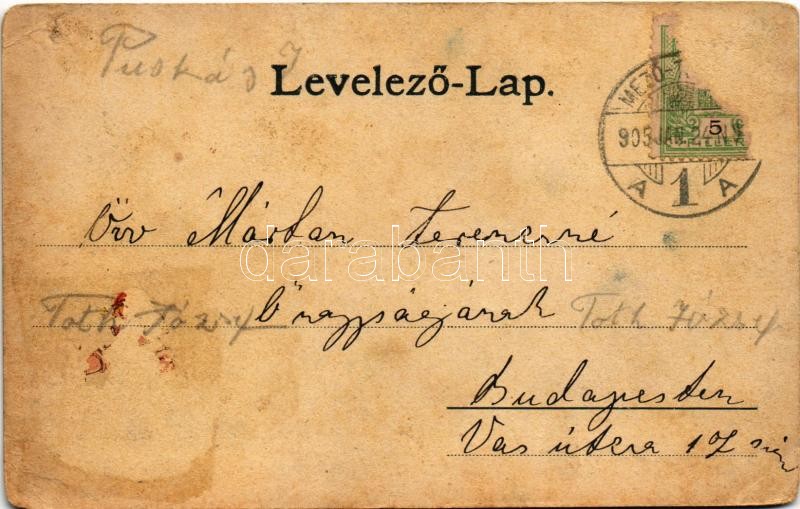 Puskás J
Levelező-Lap.
MEZŐ-
905 JAN. 24
5
A 1 A
Özv Márton Ferencné
darabanth
Tóth József Őnagyságának Tóth József
Budapesten
Vas utcza 17 szám